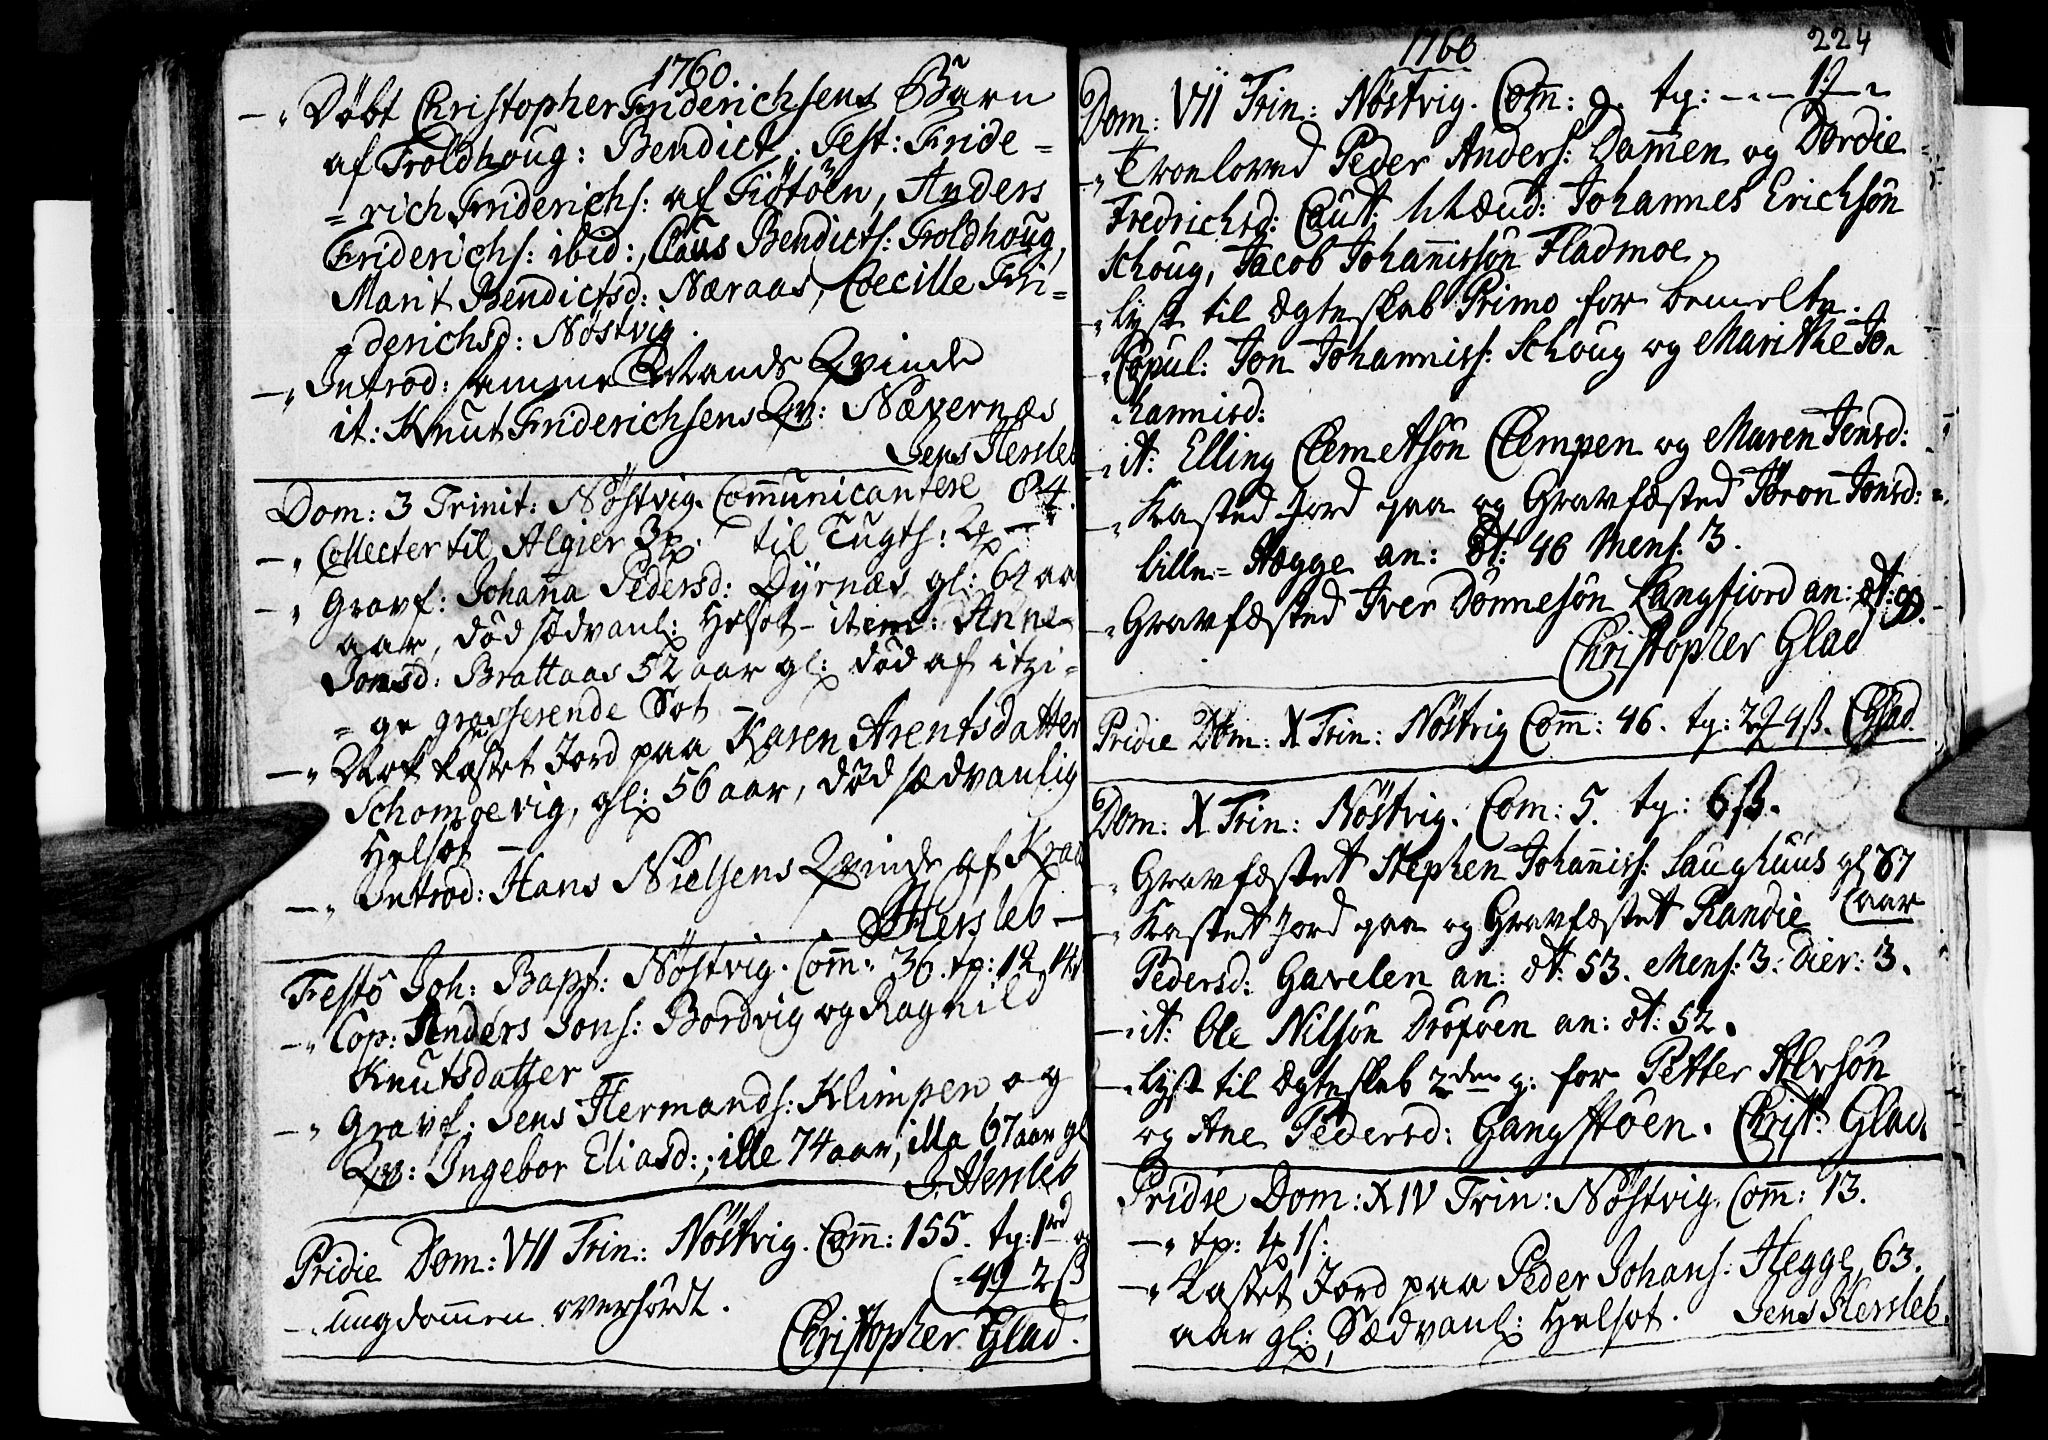 1760.
Døbt Christopher Friderichsens Barn
af Troldhoug: Bendict. Test: Fride=
=rich Friderichs: af Fiøtøen, Anders
Friderichs: ibid:, Claus Bendicts: Troldhoug,
Marit Bendictsd: Næraas, Coecille Fri=
=derichsd: Nøstvig.
Introd: samme Mands Qvinde
it: Knut Friderichsens Qv: Nævernæs
Jens Hersleb
Dom: 3 Trinit: Nøstvig. Communicantere 84.
Collecter til Algier 3 til Tugth:
Gravf: Johanna Pedersd: Dyrnæs gl: 62 aa
aar, død sædvanl: Helsot - item: Anne
Jonsd: Brattaas 52 aar gl: død af itzi=
=ge grasserende Sot -
kastet Jord paa Karen Arentsdatter
Schomoevig, gl: 56 aar, død sædvanlig
Helsot -
Introd: Hans Nielsens Qvinde af Kraa
JHersleb
Festo Joh: Bapt: Nøstvig. Comm: 36. tp: 12
Cop: Anders Jons: Bordvig og Ragnild
Knutsdatter
Gravf: Jens Hermands: Klimpen og
Qv: Ingebor Eliasd:; ille 74 aar, illa 67 aar gl
J: Hersleb
Pridie Dom: VII Trin: Nøstvig. Comm: 155. tp: 1rd
=49 2ß
ungdommen overhørdt.
Christopher Glad.
1760
224
Dom: VII Trin: Nøstvig. Comm: 9. tp:
Troeloved Peder Anders: Dammen og Dordie
Fredrichsd: Caut: Mænd: Johannes Erichsøn
Schoug, Jacob Johannissøn Fladmoe.
Lyst til Ægteskab Primo for bemelte.
Copul: Jon Johanniss: Schoug og Marithe Jo-
hannisd:
it: Elling Clemetsøn Clempen og Maren Jonsd:
Kasted Jord paa og Gravfæsted Jøron Jonsd:
Lille=Hægge an: æt: 46 Mens: 3.
Gravfæsted Iver Dønnesøn Langfiord an: æt:
Christopher Glad
Pridie Dom: X Trin: Nøstvig Comm: 46. tp: 2 4ß. CGlad.
Dom: X Trin: Nøstvig. Com: 5. tp: 6ß.
Gravfæstet Stephen Johanniss: Laughuus gl 87
aar
Kastet Jord paa og Gravfæstet Randie
Pedersd: Gavelen an: æt: 53. Mens: 3. Dier: 3.
it: Ole Nilsøn Drøføen an: æt: 52.
Lyst til Ægteskab 2den g: for Petter Alvsøn
og Ane Pedersd: Gangstøen. Christ: Glad.
Pridie Dom: XIV Trin: Nøstvig. Comm: 13.
tp:
Kastet Jord paa Peder Johans: Hegge 63.
aar gl:, Sædvanl: Helsot. Jens Hersleb.